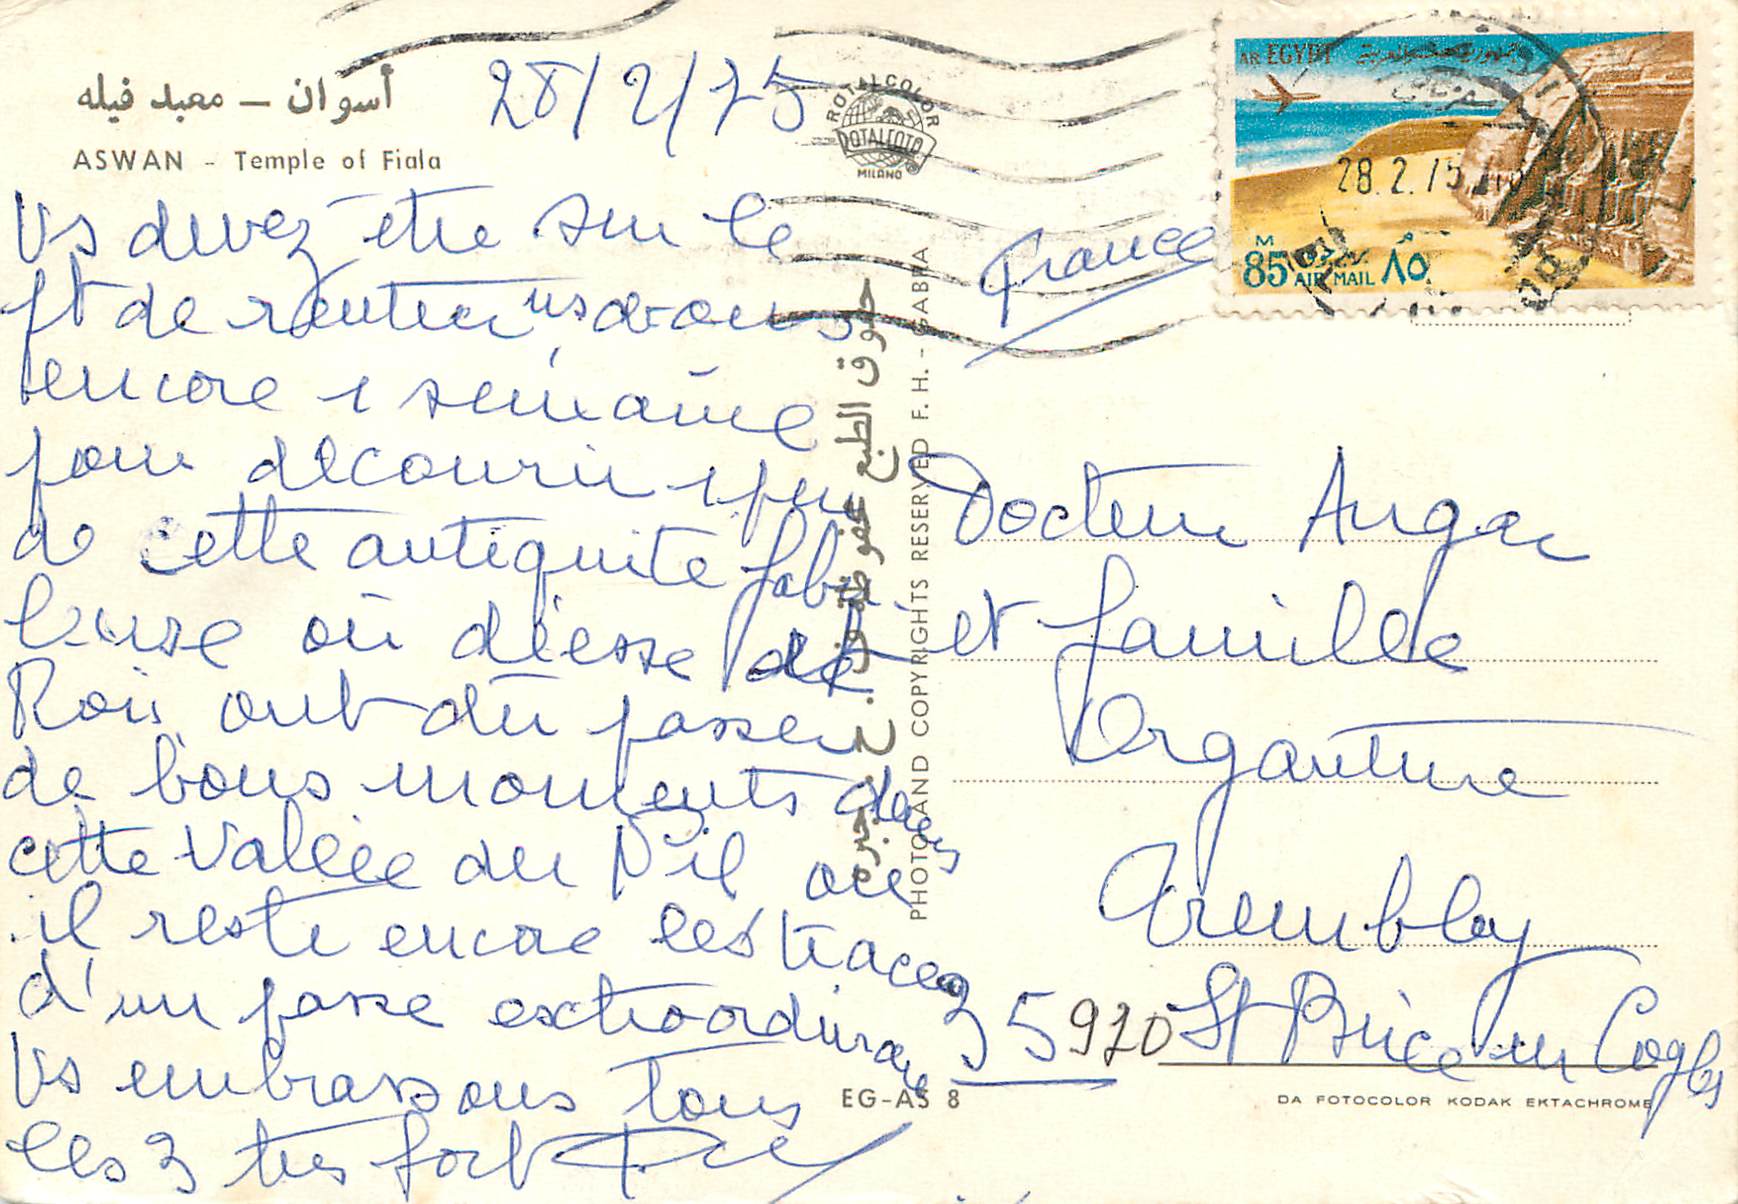 أسوان – معبد فيله
ASWAN - Temple of Fiala
28/2/75
Vs devez être sur le
pt de rentrer ns avons
encore 1 semaine
pour découvrir 1 peu
de cette antiquité fabu
leuse où déesse et
Rois ont dû passer
de bons moments dans
cette Vallée du Nil où
il reste encore les traces
d'un passé extraordinaire
Vs embrassons tous
les 3 très fort
ROTALCOLOR
ROTALFOTO
MILANO
حقوق الطبع محفوظة ف. ح. جبره
PHOTO AND COPYRIGHTS RESERVED F. H. - GABRA
EG-AS 8
AR EGYPT جمهورية مصر العربية
28.2.75
M
85 AIR MAIL ٨٥
France
Docteur Angar
et famille
Argantine
Grembloy
35920 St Brice en Cogles
DA FOTOCOLOR KODAK EKTACHROME